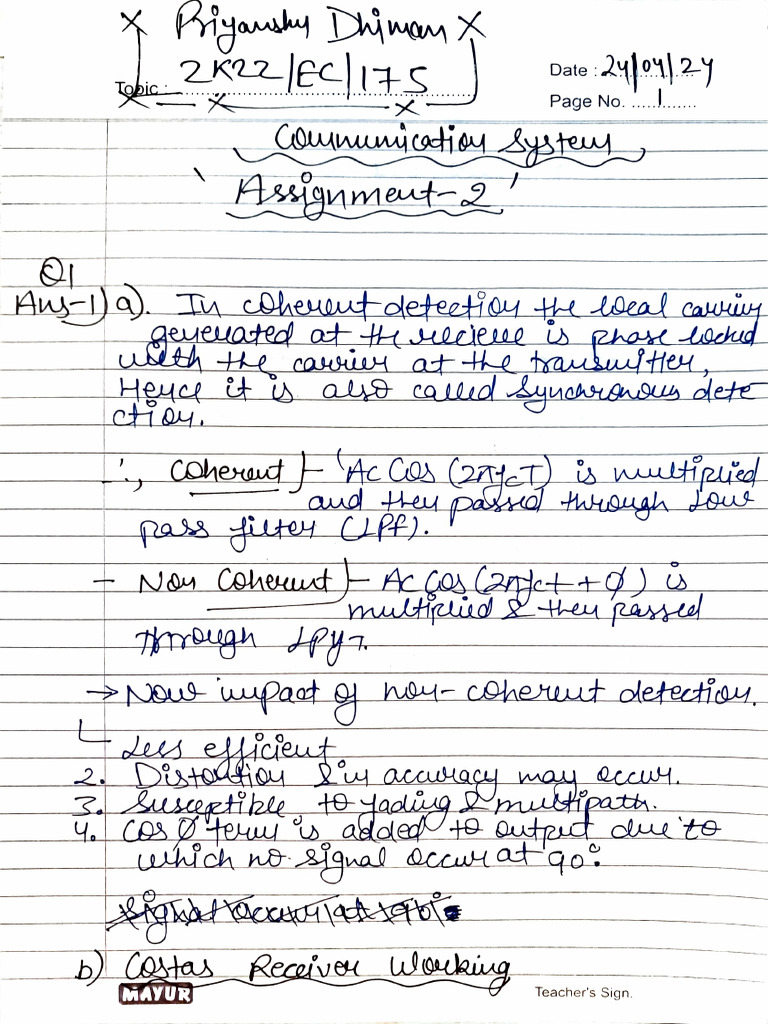 Priyanshu Dhiman
Topic : 2K22/EC/175
Date : 24/04/24
Page No. 1
Communication System
'Assignment-2'
Q1
Ans-1) a). In coherent detection the local carrier
generated at the recieve is phase locked
with the carrier at the transmitter,
Hence it is also called Synchronous dete
ction.
∴, Coherent }- 'Ac Cos (2πfcT) is multiplied
and then passed through Low
pass filter (LPf).
- Non Coherent }- Ac Cos(2πfct + Ø) is
multiplied & then passed
through LPF.
→ Now impact of non-coherent detection.
Less efficient
2. Distortion & in accuracy may occur.
3. Susceptible to fading & multipath.
4. Cos Ø term is added to output due to
which no signal occur at 90°.
Signal occur at 90°
b) Costas Receiver Working
MAYUR
Teacher's Sign.